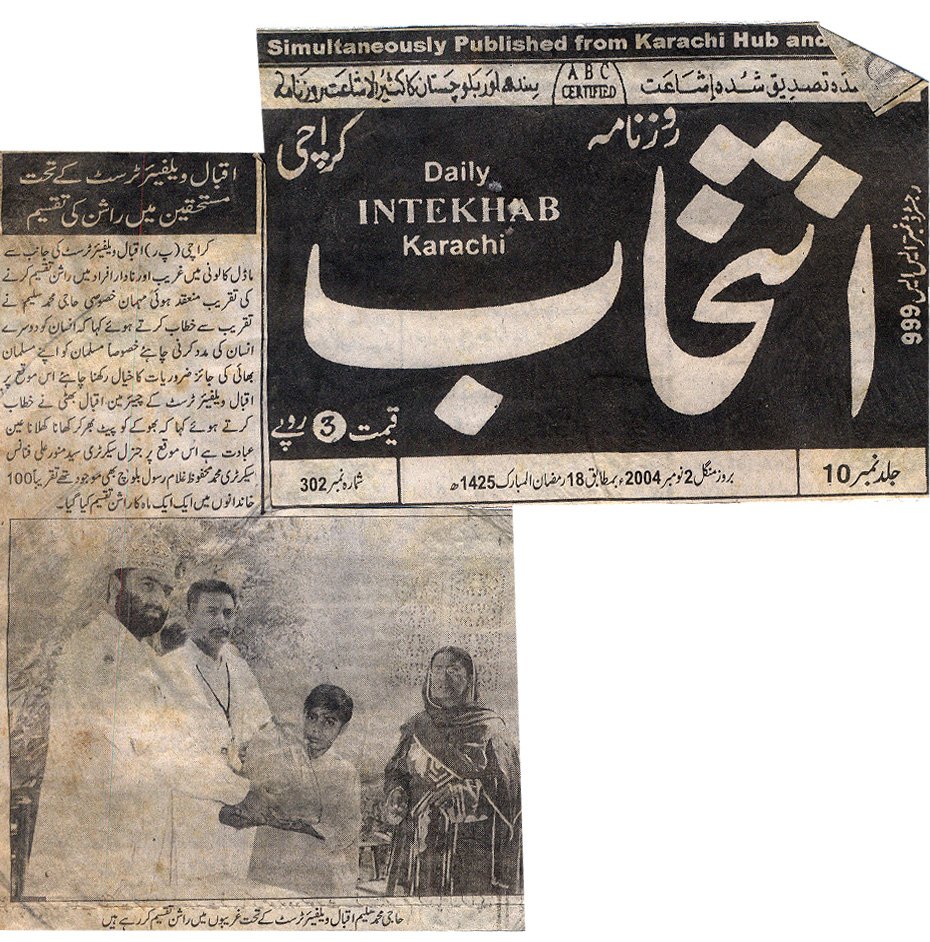 Simultaneously Published from Karachi Hub and
سندھ اور بلوچستان کا کثیر الاشاعت روزنامہ
A B C
CERTIFIED
تصدیق شدہ اشاعت
روزنامہ
کراچی
انتخاب
Daily
INTEKHAB
Karachi
رجسٹرڈ نمبر ایس ایس 999
قیمت 3 روپے
جلد نمبر 10
بروز منگل 2 نومبر 2004ء بمطابق 18 رمضان المبارک 1425ھ
شمارہ نمبر 302
اقبال ویلفیئر ٹرسٹ کے تحت
مستحقین میں راشن کی تقسیم
کراچی (پ ر) اقبال ویلفیئر ٹرسٹ کی جانب سے
ماڈل کالونی میں غریب اور نادار افراد میں راشن تقسیم کرنے
کی تقریب منعقد ہوئی مہمان خصوصی حاجی محمد سلیم نے
تقریب سے خطاب کرتے ہوئے کہا کہ انسان کو دوسرے
انسان کی مدد کرنی چاہئے خصوصاً مسلمان کو اپنے مسلمان
بھائی کی جائز ضروریات کا خیال رکھنا چاہئے اس موقع پر
اقبال ویلفیئر ٹرسٹ کے چیئرمین اقبال بھٹی نے خطاب
کرتے ہوئے کہا کہ بھوکے کو پیٹ بھر کر کھانا کھلانا عین
عبادت ہے اس موقع پر جنرل سیکرٹری سید منور علی فنانس
سیکرٹری محمد محفوظ غلام رسول بلوچ بھی موجود تھے تقریباً 100
خاندانوں میں ایک ایک ماہ کا راشن تقسیم کیا گیا۔
حاجی محمد سلیم اقبال ویلفیئر ٹرسٹ کے تحت غریبوں میں راشن تقسیم کر رہے ہیں